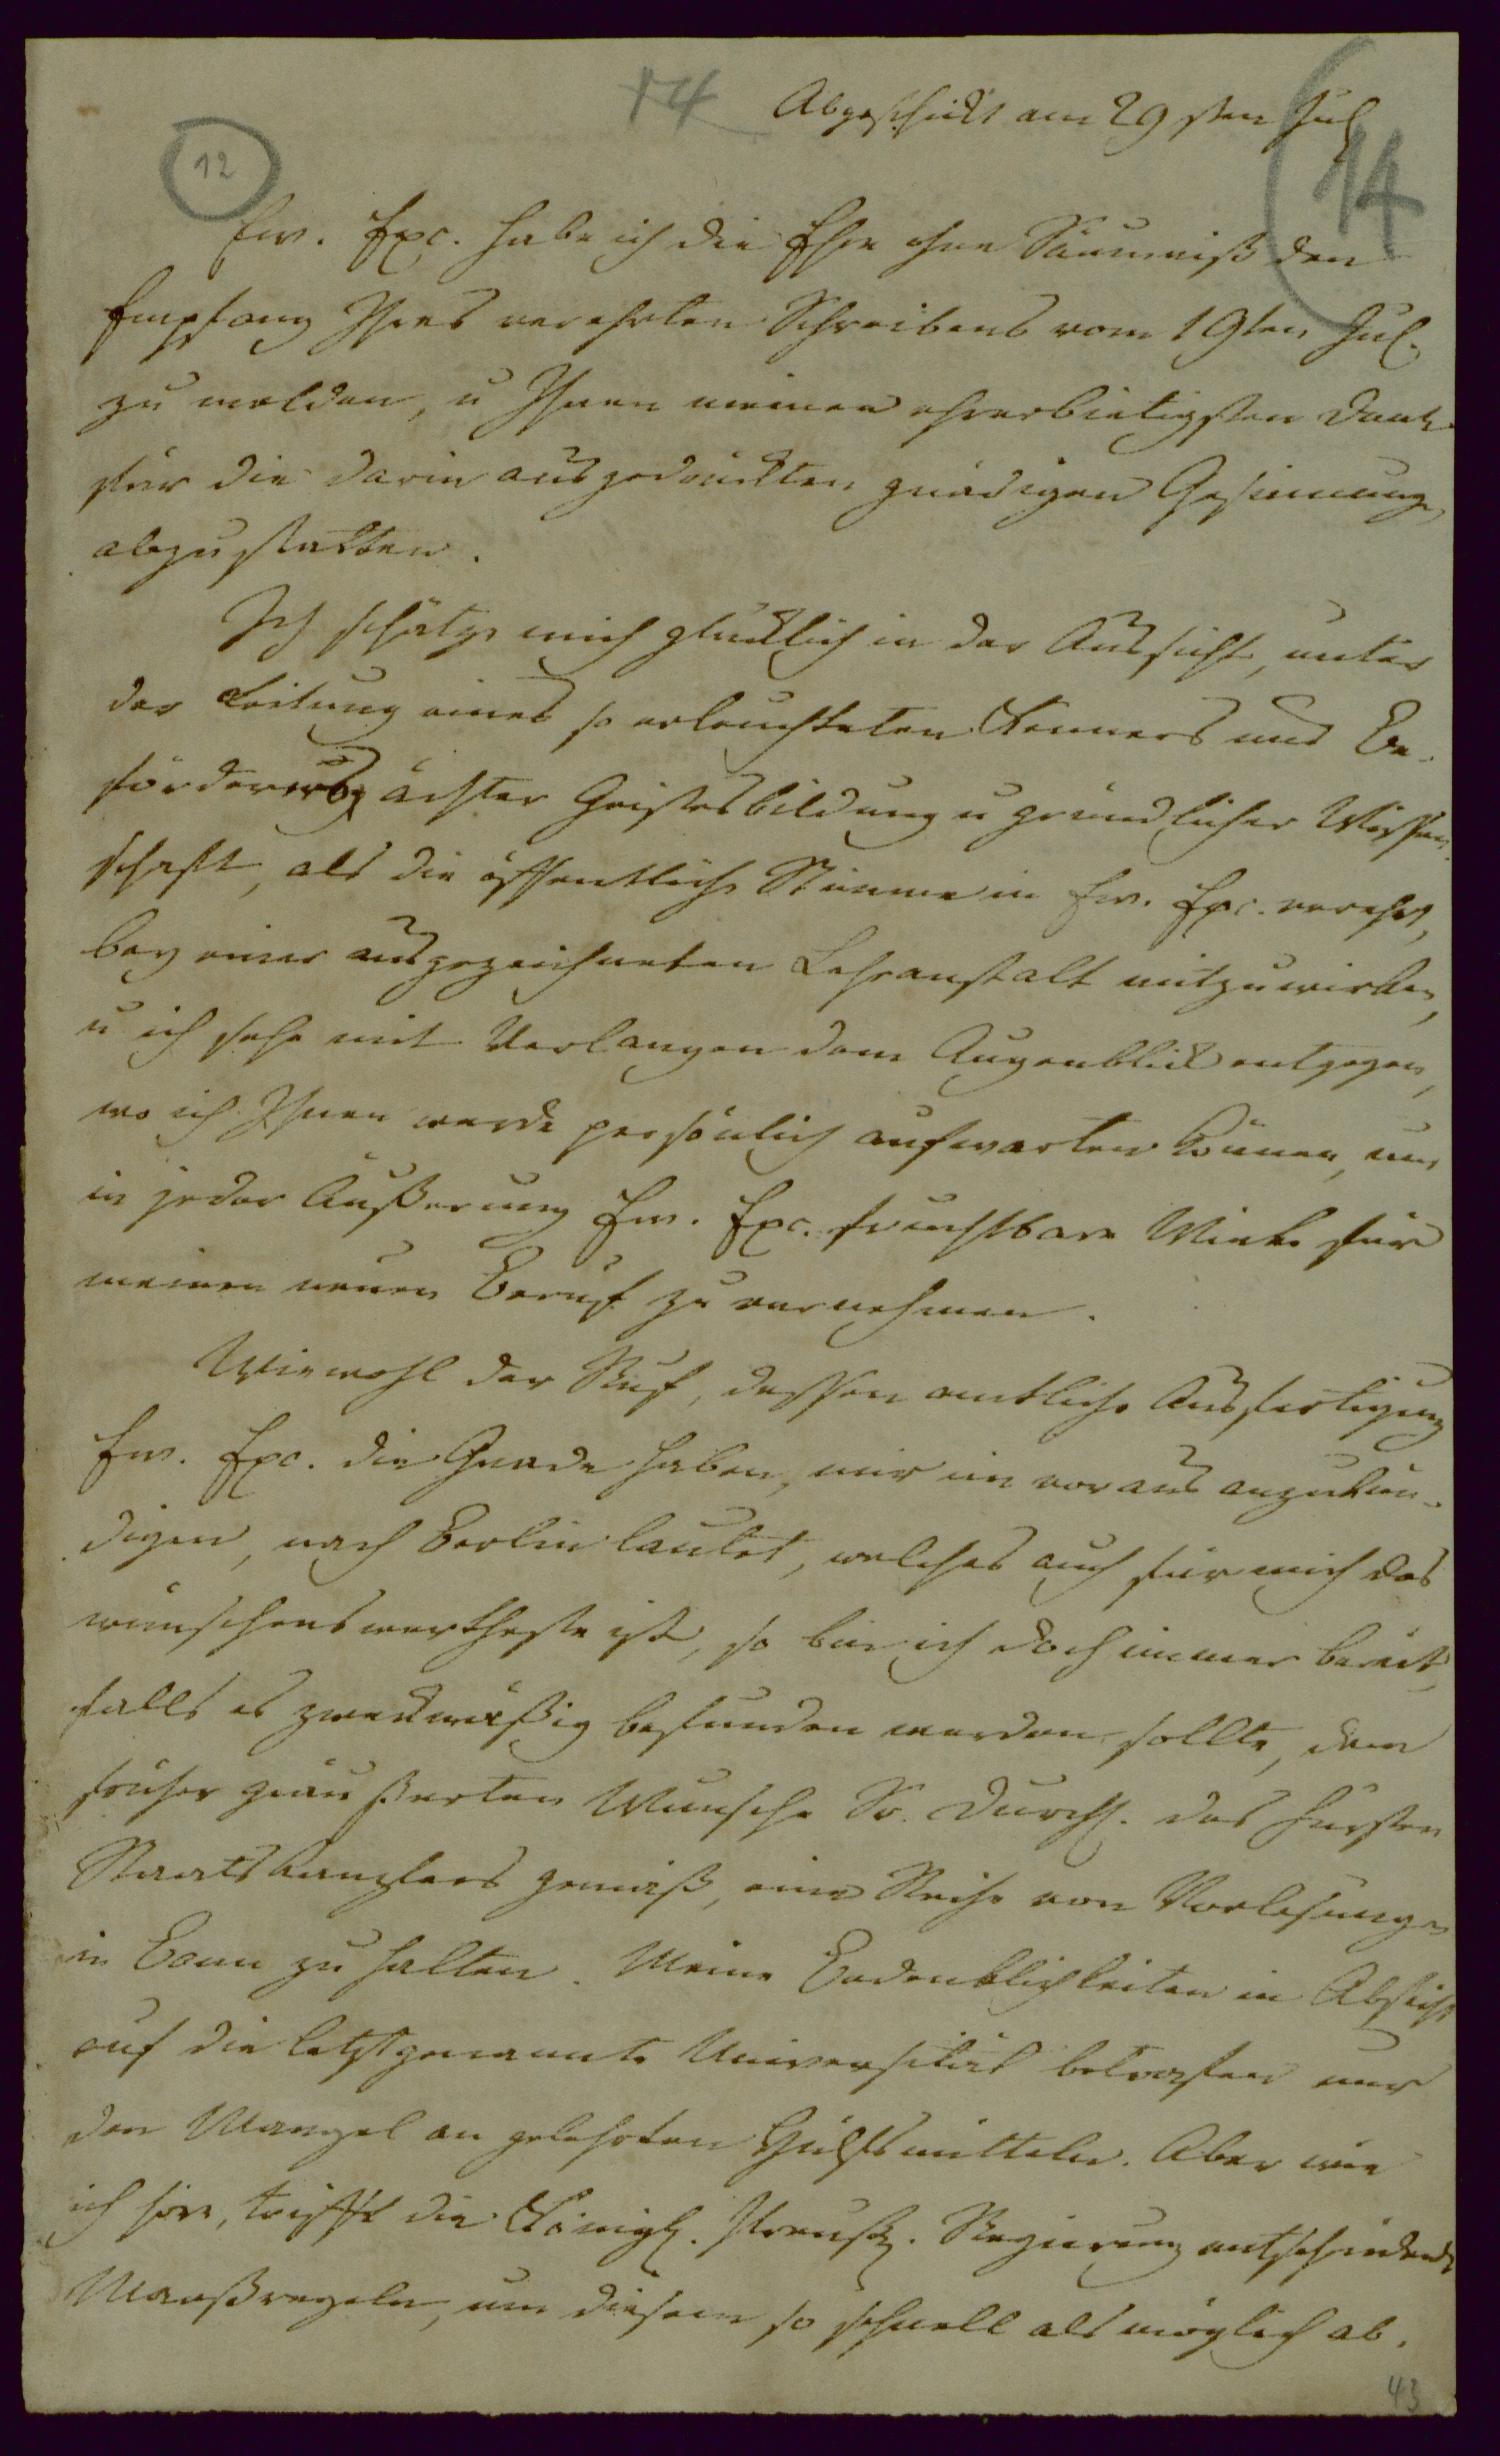 14
Abgeschickt am 29sten Jul
12
14
Ew. Exc. habe ich die Ehre ohne Säumniß den
Empfang Ihres verehrten Schreibens vom 19ten Jul.
zu melden, u Ihnen meinen ehrerbietigsten Dank
für die darin ausgedrückten gnädigen Gesinnungen
abzustatten.
Ich schätze mich glücklich in der Aussicht, unter
der Leitung eines so erleuchteten Kenners und Be-
förderers ächter Geistesbildung u gründlicher Wissen-
schaft, als die öffentliche Stimme in Ew. Exc. verehrt,
bey einer ausgezeichneten Lehranstalt mitzuwirken,
u ich sehe mit Verlangen dem Augenblick entgegen,
wo ich Ihnen werde persönlich aufwarten können, um
in jeder Äußerung Ew. Exc. fruchtbare Winke für
meinen neuen Beruf zu vernehmen.
Wiewohl der Ruf, dessen amtliche Ausfertigung
Ew. Exc. die Gnade haben, mir im voraus anzukün-
digen, nach Berlin lautet, welches auch für mich das
wünschenswertheste ist, so bin ich doch immer bereit,
falls es zweckmäßig befunden werden sollte, dem
früher geäußerten Wunsche Sr. Durchl. des Fürsten
Staatskanzlers gemäß, eine Reihe von Vorlesungen
in Bonn zu halten. Meine Bedenklichkeiten in Absicht
auf die letztgenannte Universität betrafen nur
den Mangel an gelehrten Hülfsmitteln. Aber wie
ich höre, trifft die Königl. Preuß. Regierung entscheidende
Maaßregeln, um diesem so schnell als möglich ab-
43